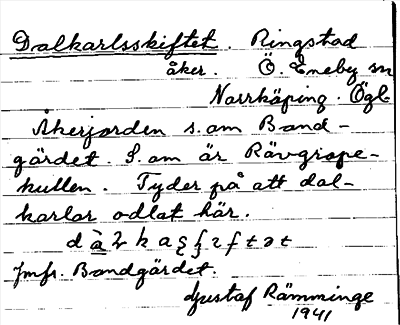 Dalkarlsskiftet. Ringstad
åker. Ö. Eneby sn
Norrköping. Ögl.
Åkerjorden s. om Band-
gärdet. S. om är Rävgrope-
kullen. Tyder på att dal-
karlar odlat här.
Jmfr. Bandgärdet.
Gustaf Rämminge
1941